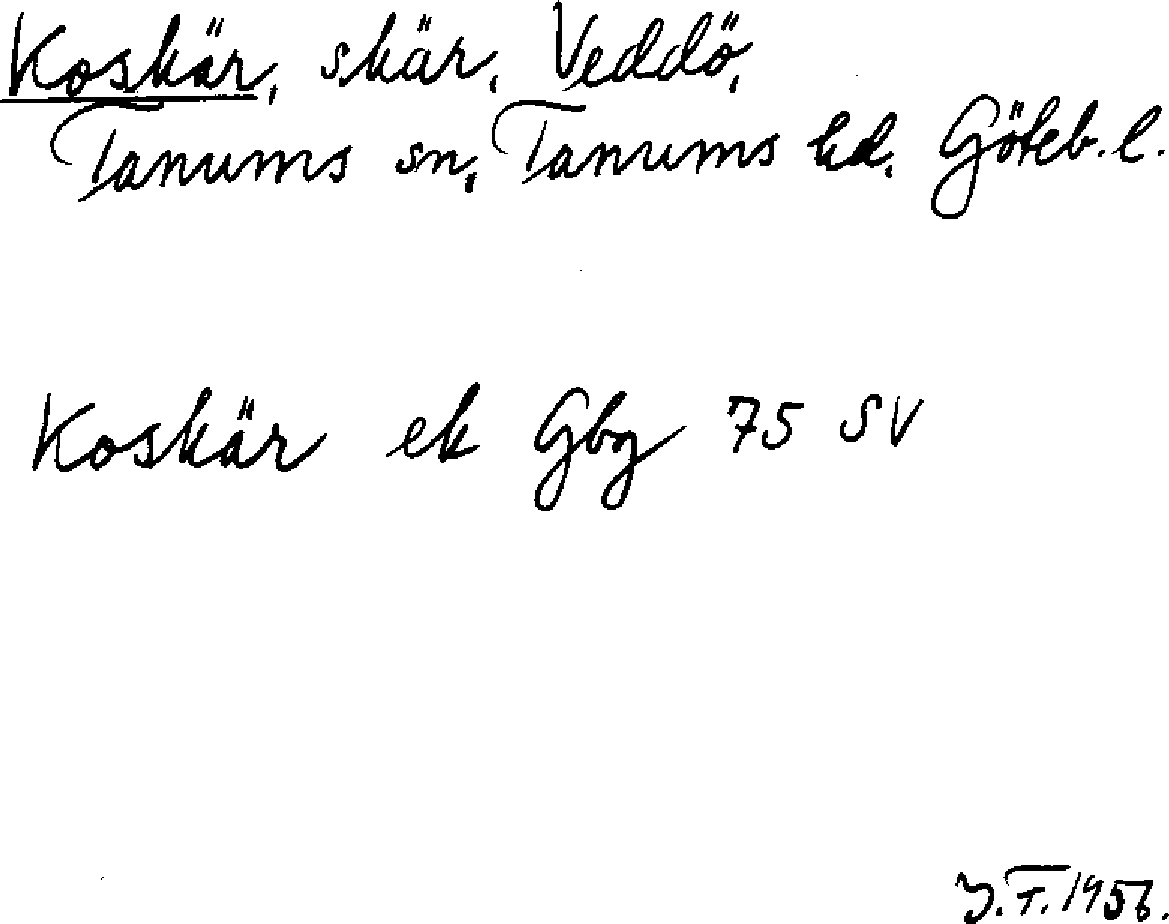 Koskär, skär, Veddö,
Tanums sn, Tanums hd. Göteb. l.
Koskär ek Gbg 75 SV
J.T. 1956.